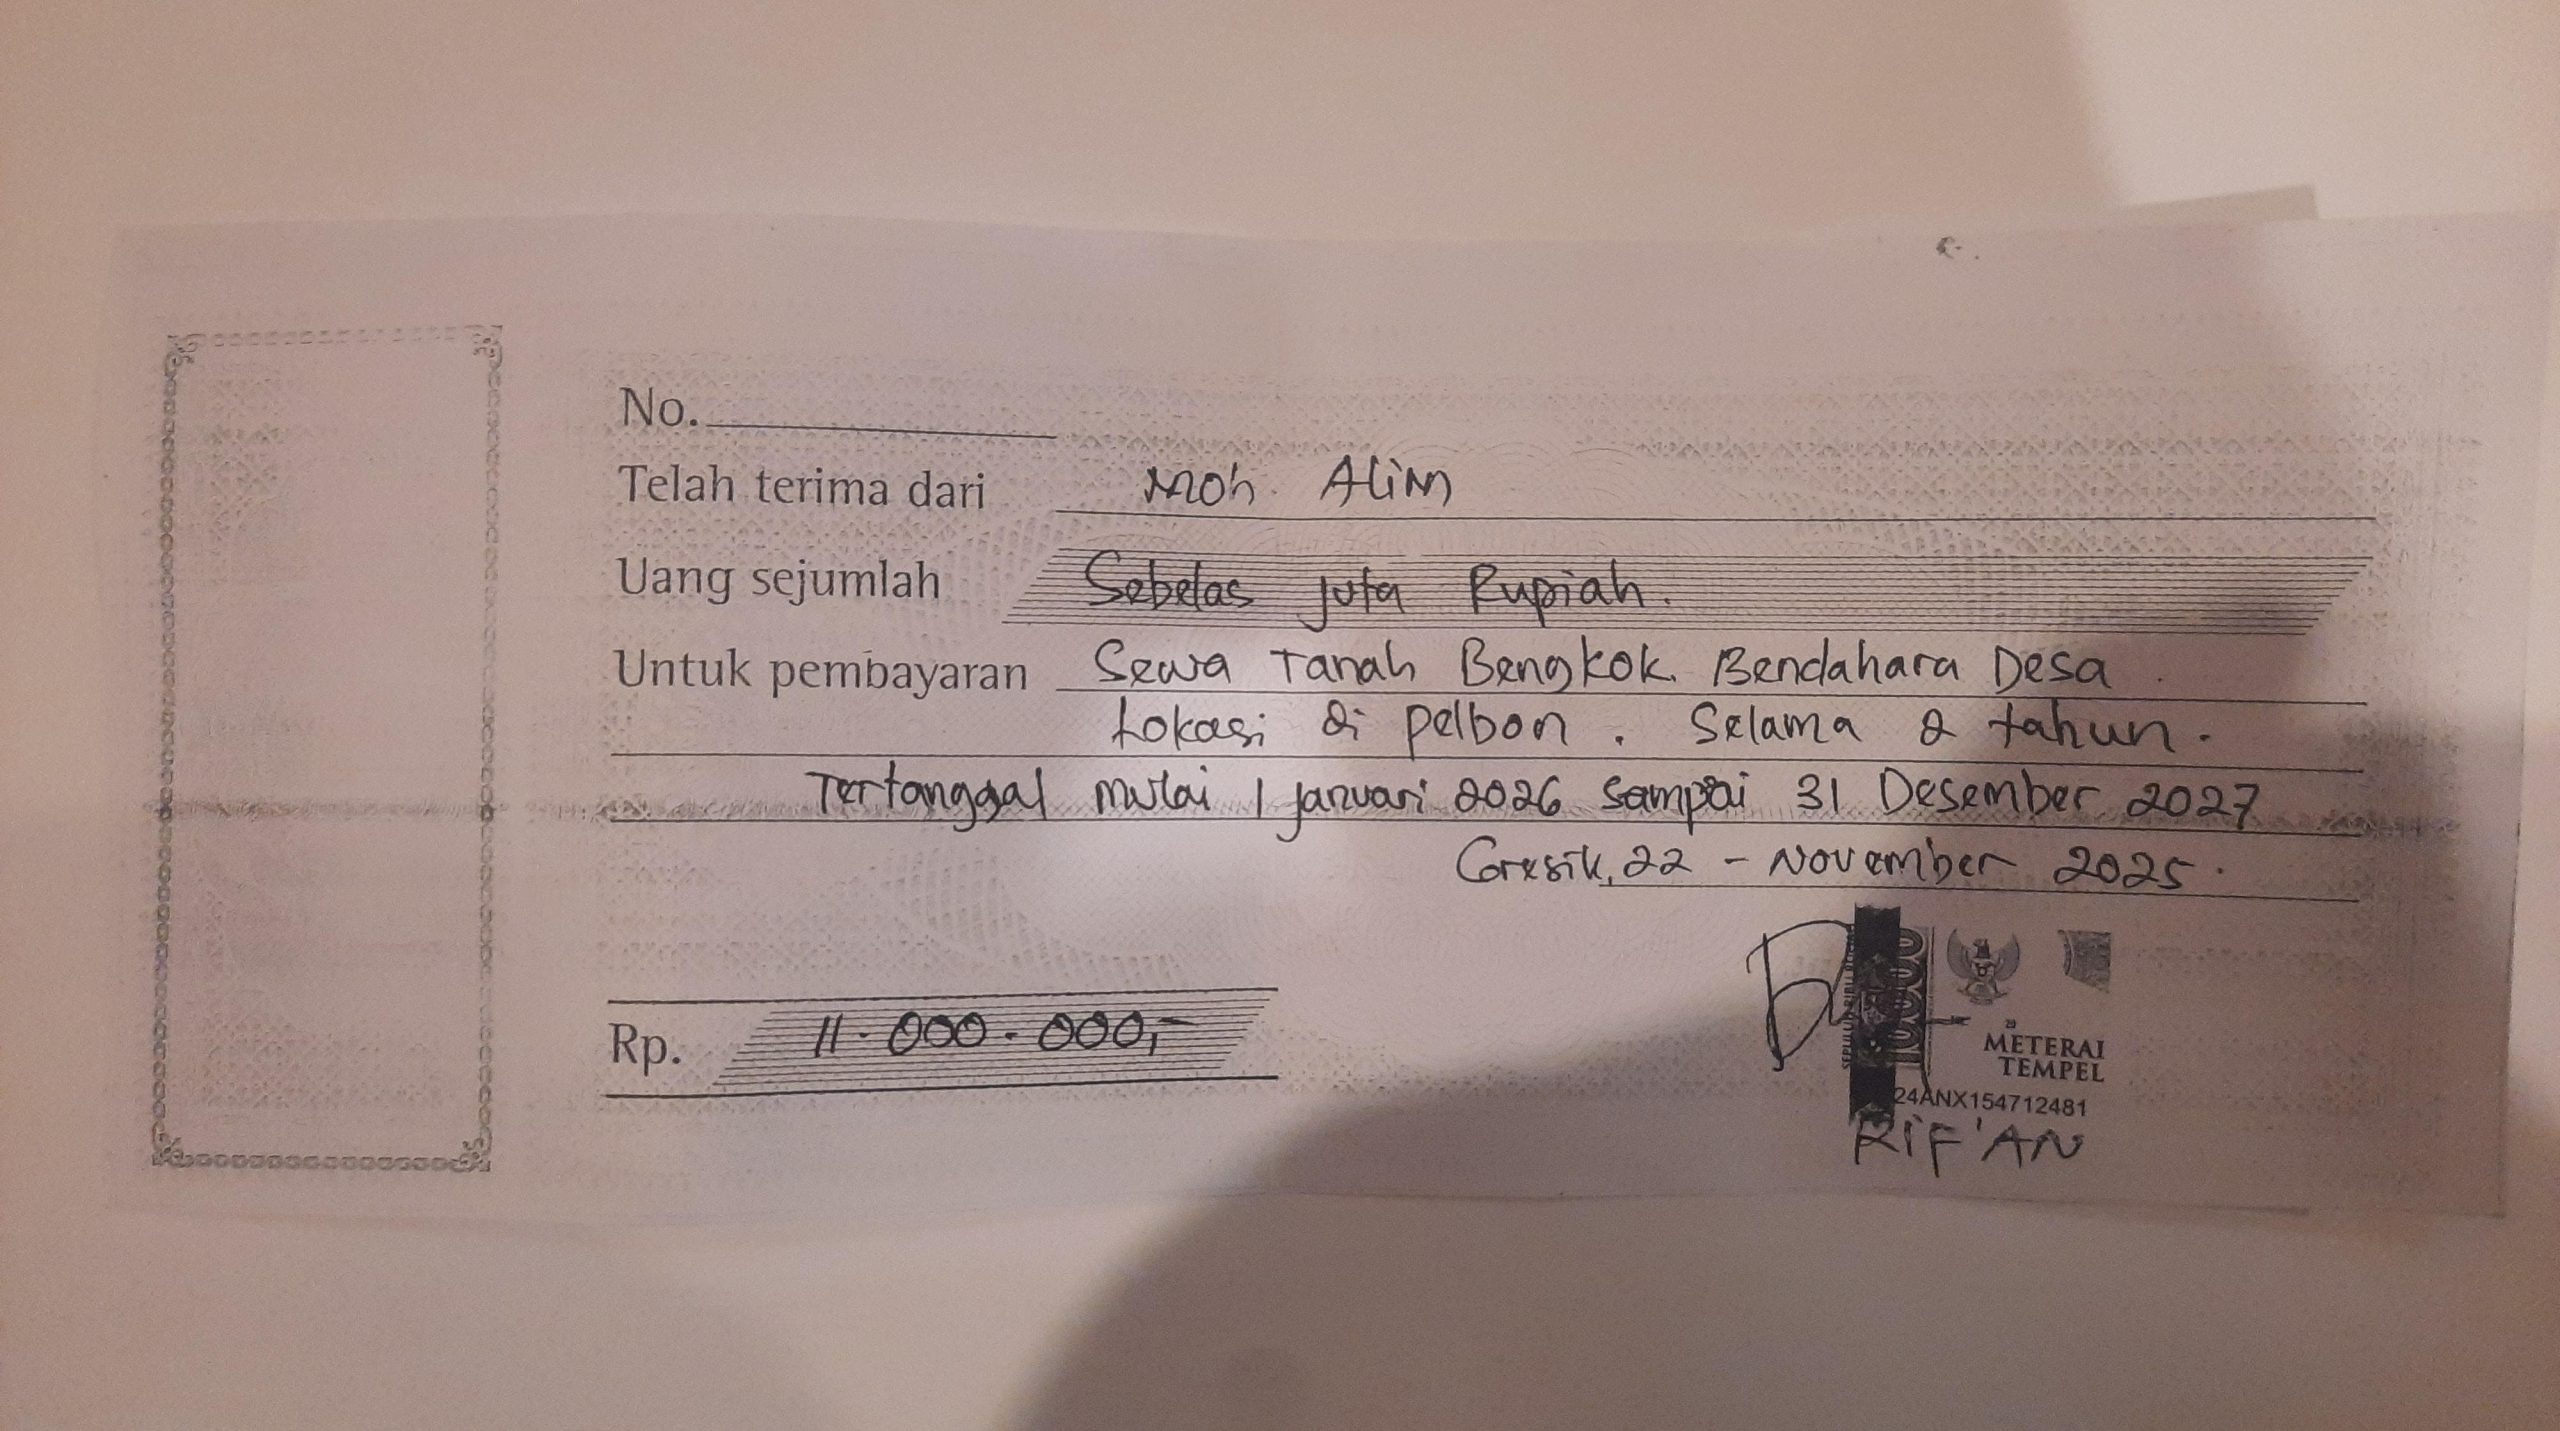 No.
Telah terima dari Moh. Alim
Uang sejumlah Sebelas juta Rupiah.
Untuk pembayaran Sewa Tanah Bengkok Bendahara Desa
Lokasi di Pelbon. Selama 2 tahun.
Tertanggal mulai 1 Januari 2026 sampai 31 Desember 2027
Gresik, 22 - November 2025.
Rp. 11.000.000,-
10000
METERAI
TEMPEL
24ANX154712481
RIF'AN